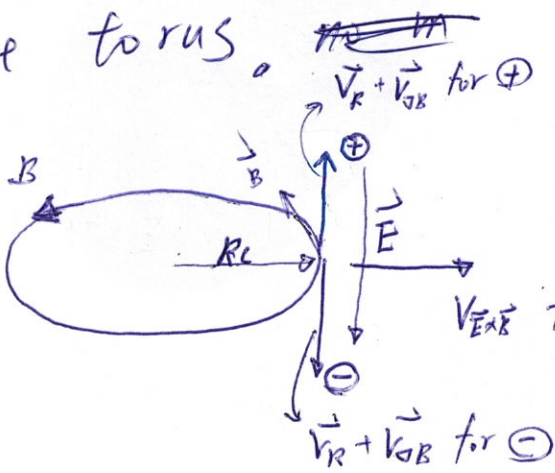 torus.
V⃗_R + V⃗_∇B for ⊕
B
B⃗
⊕
R_c
E⃗
V_E⃗×B⃗
⊖
V⃗_R + V⃗_∇B for ⊖